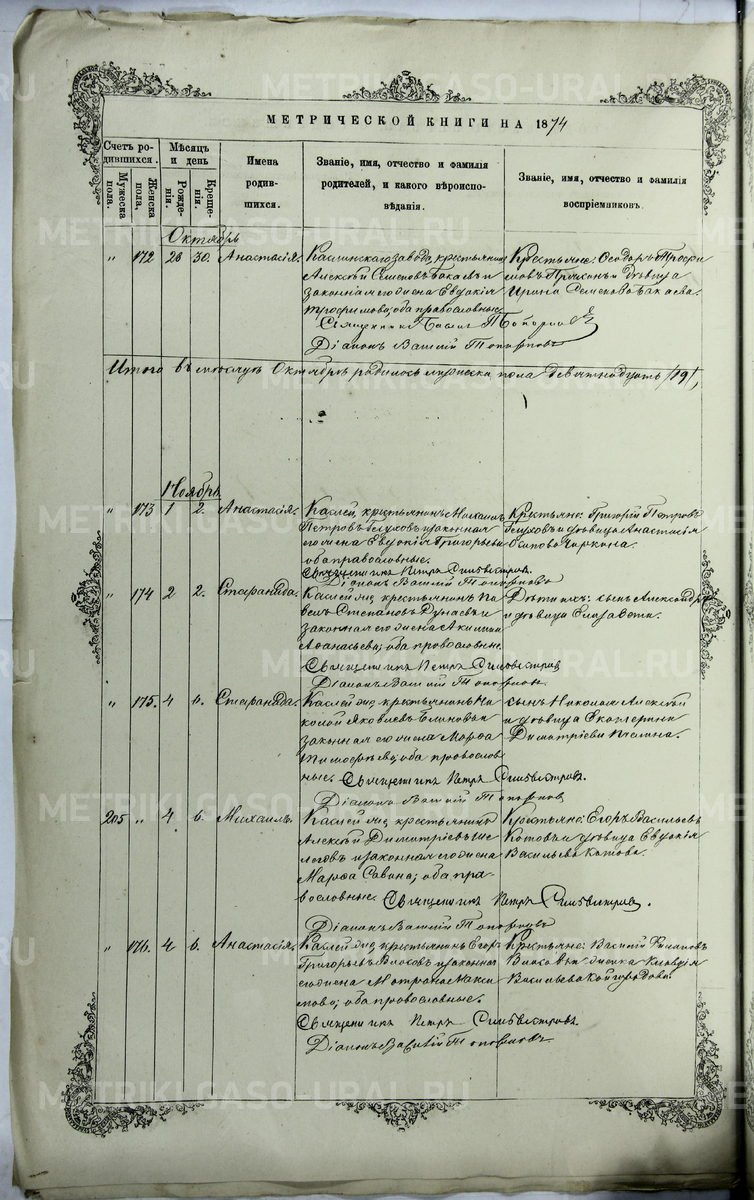 МЕТРИЧЕСКОЙ КНИГИ НА 1874
Счетъ родившихся.
Мѣсяцъ и день
Имена родившихся.
Званіе, имя, отчество и фамилія родителей, и какого вѣроисповѣданія.
Званіе, имя, отчество и фамилія воспріемниковъ.
Мужеска пола.
Женска пола.
Рожденія.
Крещенія.
Октябрь
" 172 28 30. Анастасія.
Каслинскаго завода, крестьянинъ
Алексѣй Семеновъ Бакаевъ и
законная его жена Евдокія
Трофимова; оба православные.
Крестьяне: Ѳеодоръ Трофи
мовъ и дѣвица
Ирина Семенова Бакаева.
Священникъ
Діаконъ Василій Топорковъ
Итого въ мѣсяцѣ Октябрѣ родилось мужеска пола девятнадцать /19/,
Ноябрь.
" 173 1 2. Анастасія.
Каслей, крестьянинъ Михаилъ
Петровъ Глуховъ и законная
его жена Евдокія Григорьева
оба православные.
Крестьяне: Григорій Петровъ
Глуховъ и дѣвица Анастасія
Осипова
Священникъ Петръ Сильвестровъ.
Діаконъ Василій Топорковъ
" 174 2 2. Стефанида.
Каслей крестьянинъ Па
велъ Степановъ Дунаевъ и
законная его жена Акилина
Аѳанасьева; оба православные.
Дѣти ихъ: сынъ Александръ
и дѣвица Елизавета.
Священникъ Петръ Сильвестровъ
Діаконъ Василій Топорковъ
" 175. 4 6. Стефанида.
Каслей крестьянинъ Ни
колай Яковлевъ Блиновъ и
законная его жена Марѳа
Тимоѳеева; оба православ
ные.
сынъ Николай Алексѣй
и дѣвица Екатерина
Димитріева
Священникъ Петръ Сильвестровъ.
Діаконъ Василій Топорковъ
205 " 4 6. Михаилъ.
Каслей крестьянинъ
Алексѣй Димитріевъ Ще
головъ и законная его жена
Марѳа Савина; оба пра
вославные.
Крестьяне: Егоръ Васильевъ
Котовъ и дѣвица Евдокія
Васильева Котова.
Священникъ Петръ Сильвестровъ.
Діаконъ Василій Топорковъ
" 176. 4 6. Анастасія.
Каслей крестьянинъ Егоръ
Григорьевъ Власовъ и законная
его жена Матрона Макси
мова; оба православные.
Крестьяне: Василій
Власовъ и Клавдія
Васильева
Священникъ Петръ Сильвестровъ.
Діаконъ Василій Топорковъ
METRIKI.GASO-URAL.RU